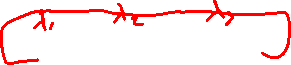 λ₁ λ₂ λ₃